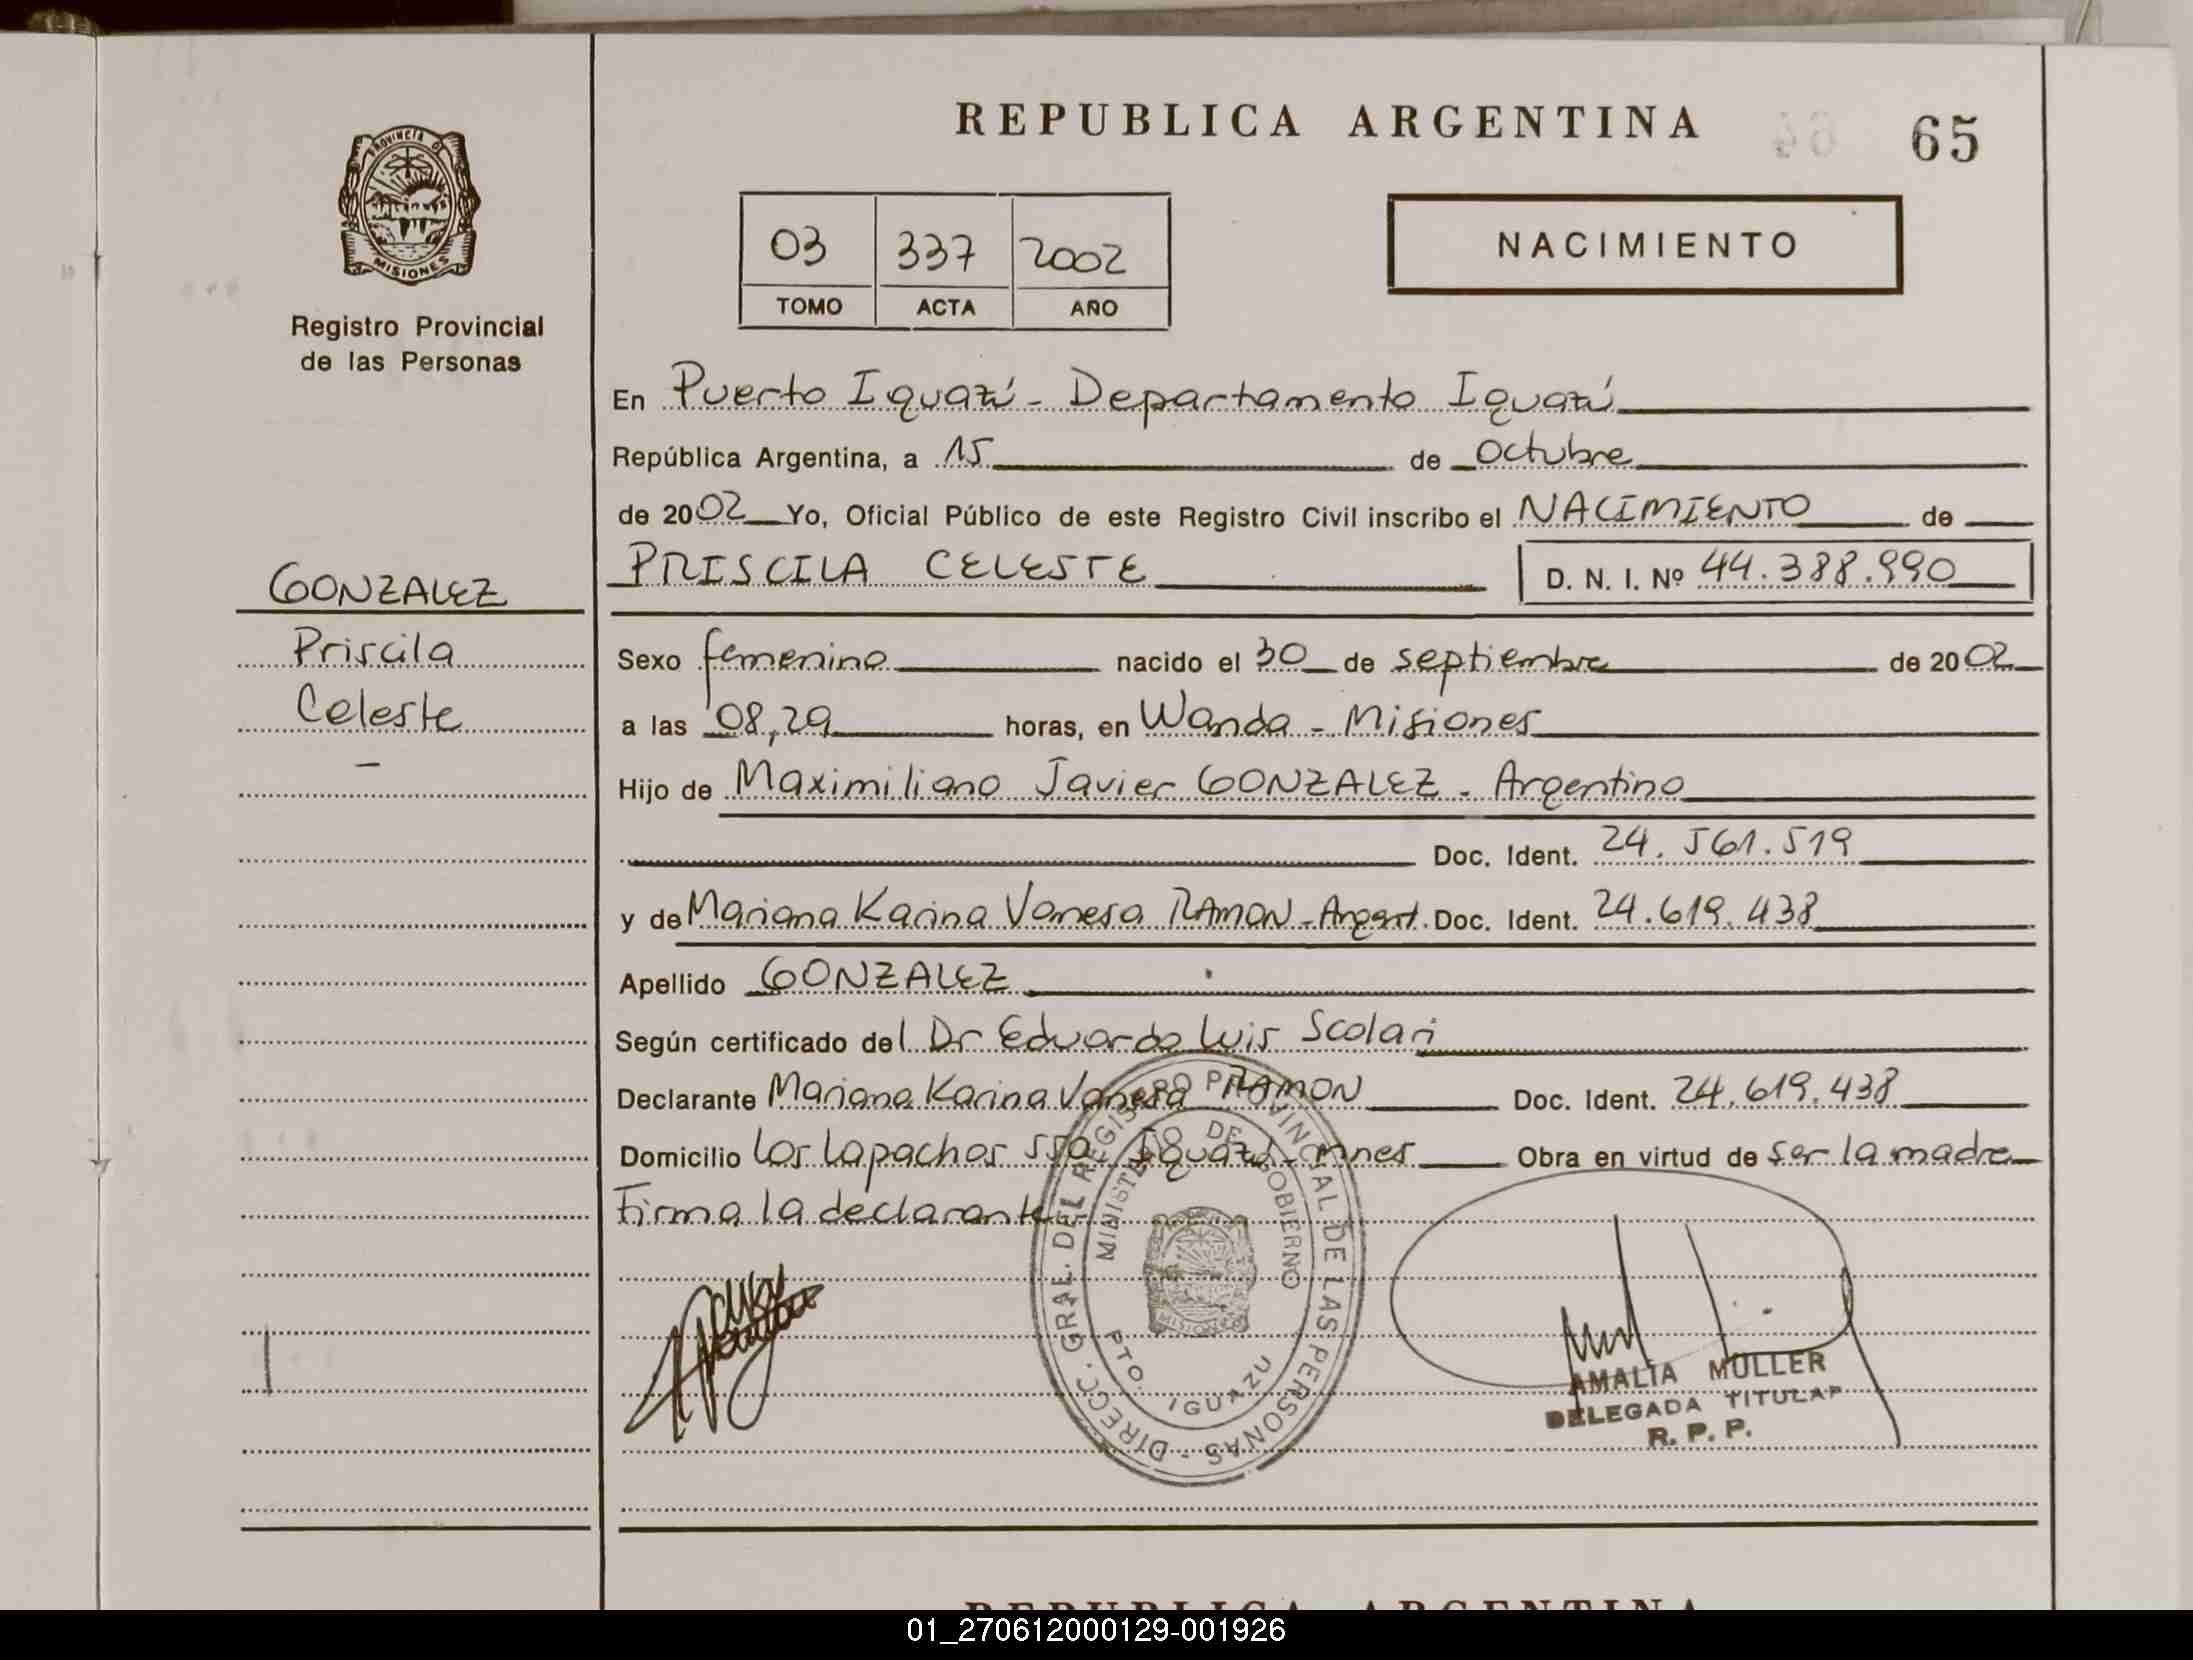 REPUBLICA ARGENTINA
65
PROVINCIA DE
MISIONES
Registro Provincial
de las Personas
03 337 2002
TOMO ACTA AÑO
NACIMIENTO
En Puerto Iguazú - Departamento Iguazú
República Argentina, a 15 de Octubre
de 2002 Yo, Oficial Público de este Registro Civil inscribo el NACIMIENTO de
PRISCILA CELESTE D. N. I. Nº 44.388.990
GONZALEZ
Priscila
Celeste
-
Sexo femenino nacido el 30 de septiembre de 2002
a las 08,29 horas, en Wanda - Misiones
Hijo de Maximiliano Javier GONZALEZ - Argentino
Doc. Ident. 24.561.519
y de Mariana Karina Vanesa RAMON - Argent. Doc. Ident. 24.619.438
Apellido GONZALEZ
Según certificado del Dr Eduardo Luis Scolari
Declarante Mariana Karina Vanesa RAMON Doc. Ident. 24.619.438
Domicilio Los Lapachos 550 Iguazú - Mnes Obra en virtud de ser la madre
Firma la declarante
DIRECC. GRAL. DEL REGISTRO PROVINCIAL DE LAS PERSONAS -
MINISTERIO DE GOBIERNO
MISIONES
PTO. IGUAZU
AMALIA MULLER
DELEGADA TITULAR
R. P. P.
REPUBLICA ARGENTINA
01_270612000129-001926